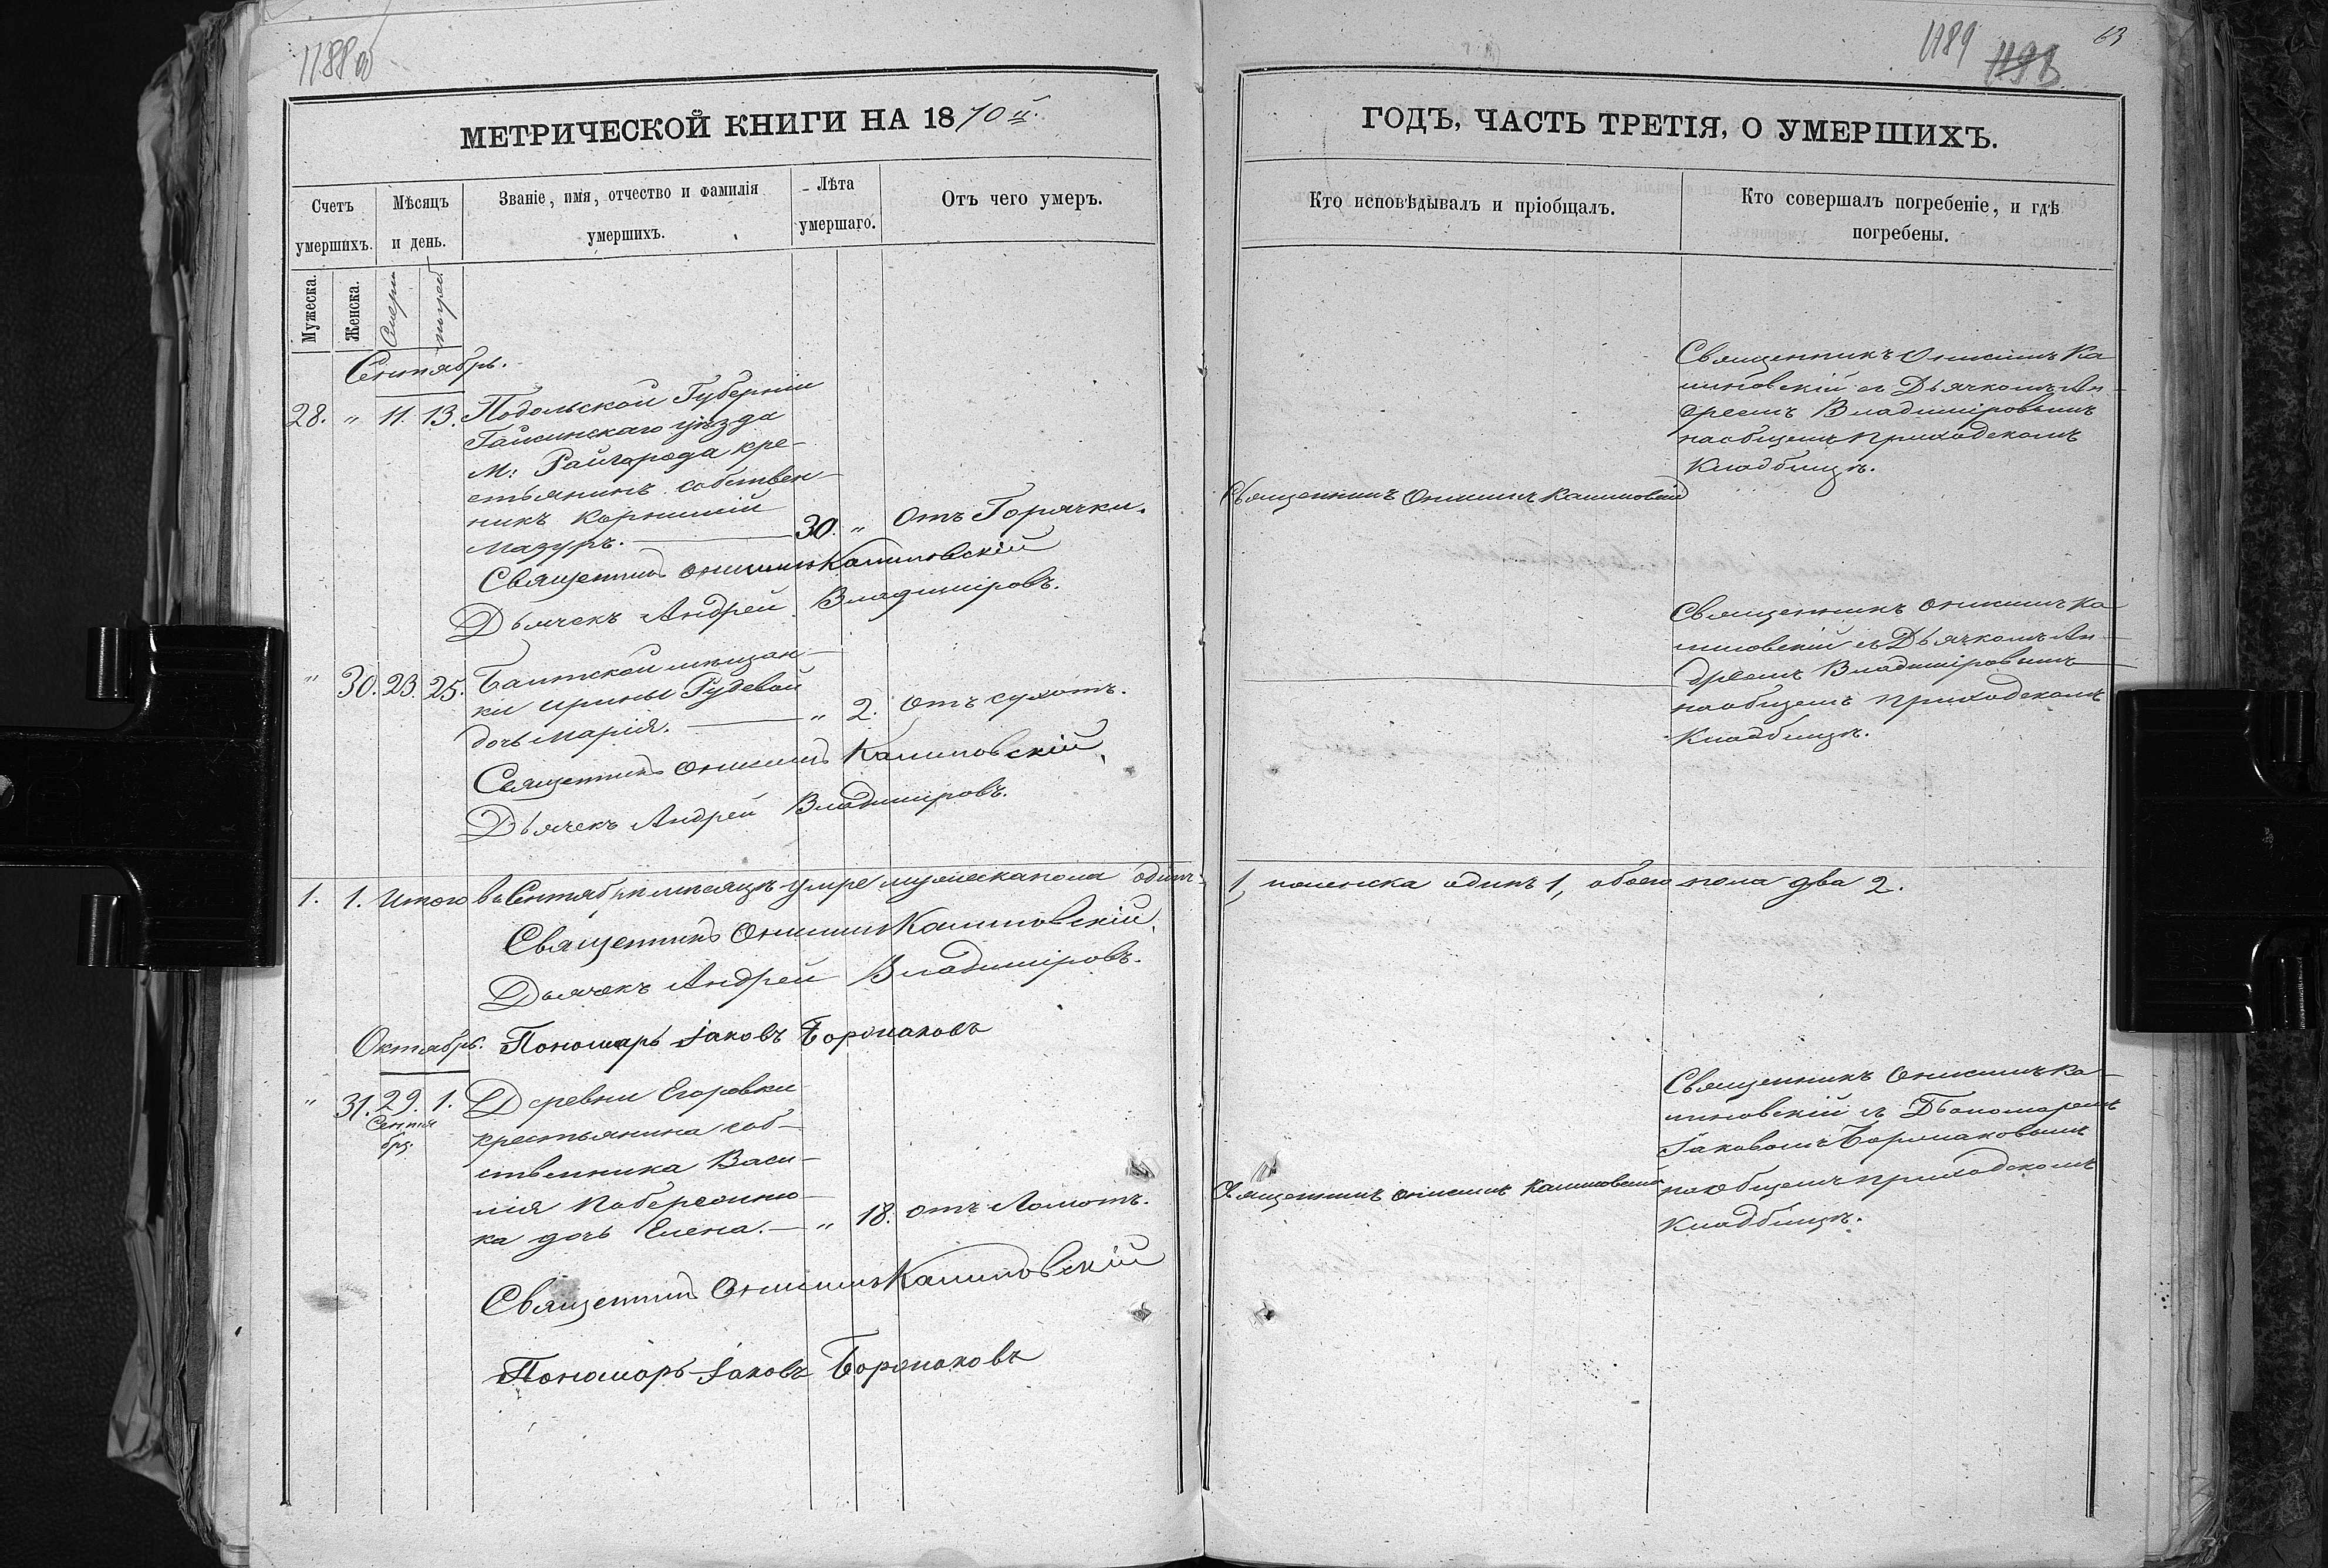 1188 об
МЕТРИЧЕСКОЙ КНИГИ НА 1870 й.
Счетъ умершихъ.
Мѣсяцъ и день.
Званіе, имя, отчество и фамилія умершихъ.
Лѣта умершаго.
Отъ чего умеръ.
Мужеска.
Женска.
Смерти
погреб.
Сентябрь.
28. " 11. 13. Подольской Губерніи
Гайсинскаго уѣзда
М: Райгорода кре-
стьянинъ собствен-
никъ Корнилій
Мазуръ. 30. " Отъ Горячки.
Священникъ Онисимъ Калиновскій
Дьячекъ Андрей Владиміровъ.
" 30. 23. 25. Балтской мѣщан-
ки Ирины Рудевой
дочь Марія. " 2. отъ сухотъ.
Священникъ Онисимъ Калиновскій,
Дьячекъ Андрей Владиміровъ.
1. 1. Итого въ Сентябрѣ мѣсяцѣ умре мужеска пола одинъ
Священникъ Онисимъ Калиновскій,
Дьячекъ Андрей Владиміровъ.
Октябрь. Пономарь Іаковъ
" 31. 29. 1. Деревни Егоровки
Сентя
бря
крестьянина соб-
ственника Васи-
лія Побережню-
ка дочь Елена. " 18. отъ Ломотъ.
Священникъ Онисимъ Калиновскій
Пономарь Іаковъ
1189
1193
63
ГОДЪ, ЧАСТЬ ТРЕТІЯ, О УМЕРШИХЪ.
Кто исповѣдывалъ и пріобщалъ.
Кто совершалъ погребеніе, и гдѣ
погребены.
Священникъ Онисимъ Ка
линовскій съ Дьячкомъ Ан-
дреемъ Владиміровымъ
на общемъ приходскомъ
Кладбищѣ.
Священникъ Онисимъ Калиновскій
Священникъ Онисимъ Ка
линовскій съ Дьячкомъ Ан-
дреемъ Владиміровымъ
на общемъ приходскомъ
Кладбищѣ.
1, женска одинъ 1, обоего пола два 2.
Священникъ Онисимъ Ка-
линовскій съ
Іаковомъ
на общемъ приходскомъ
Кладбищѣ.
Священникъ Онисимъ Калиновскій